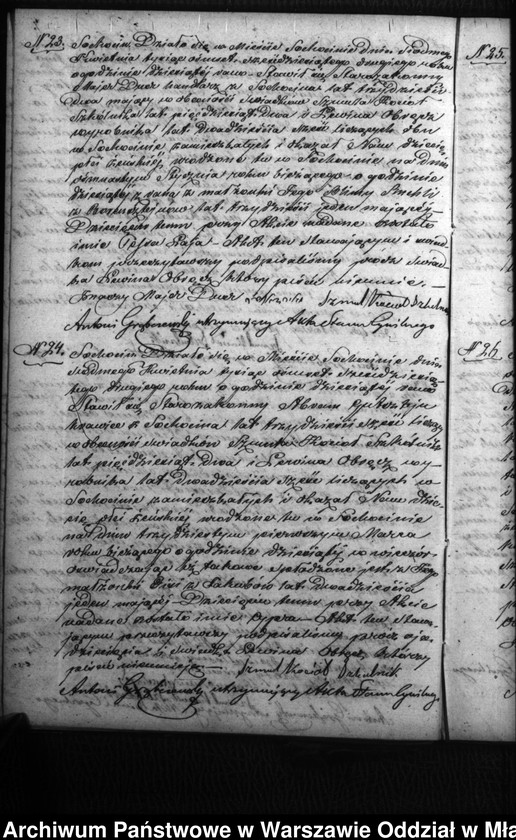 N 23.
Sochocin. Działo się w Mieście Sochocinie dnia Siódmego
Kwietnia tysiąc ośmset sześćdziesiątego drugiego roku
o godzinie dziesiątej rano. Stawił się Starozakonny
Major Dner handlarz z Sochocina lat trzydzieści
dwa mający w obecności świadków Szmula Kociał
Szkolnika lat pięćdziesiąt dwa i Lewina Obręcz
wyrobnika lat dwadzieścia sześć liczących obu
w Sochocinie zamieszkałych i okazał Nam dziecię
płci żeńskiej urodzone tu w Sochocinie na dniu
Stycznia roku bieżącego o godzinie
dziesiątej z rana z małżonki Jego
z lat trzydzieści jeden mającej.
Dziecięciu temu przy Akcie nadane zostało
imię Akt ten stawającym i świad
kom przeczytawszy podpisaliśmy prócz świad
ka Lewina Obręcz który pisać nieumie. —
Major Dner Szmul Kociał Szkolnik
Antoni Grąbczewski utrzymujący Akta Stanu Cywilnego
N 24.
Sochocin. Działo się w Mieście Sochocinie dnia
siódmego Kwietnia tysiąc ośmset sześćdziesią
tego drugiego roku o godzinie dziesiątej rano
Stawił się Starozakonny Abram
krawiec z Sochocina lat trzydzieści sześć liczący
w obecności świadków Szmula Kociał Szkolnika
lat pięćdziesiąt dwa i Lewina Obręcz wy
robnika lat dwadzieścia sześć liczących w
Sochocinie zamieszkałych i okazał Nam dzie
cię płci żeńskiej urodzone tu w Sochocinie
na dniu trzydziestym pierwszym Marca
roku bieżącego o godzinie dziesiątej w wieczór
oświadczając iż takowe spłodzone jest z Jego
małżonki z Jakubów lat dwadzieścia
jeden mającej. Dziecięciu temu przy Akcie
nadane zostało imię Akt ten stawa
jącym przeczytawszy podpisaliśmy prócz oj
dziecięcia i świadka Lewina Obręcz którzy
pisać nieumieją. — Szmul Kociał Szkolnik
Antoni Grąbczewski utrzymujący Akta Stanu Cywilnego
N 25.
N 26.
Archiwum Państwowe w Warszawie Oddział w Mła